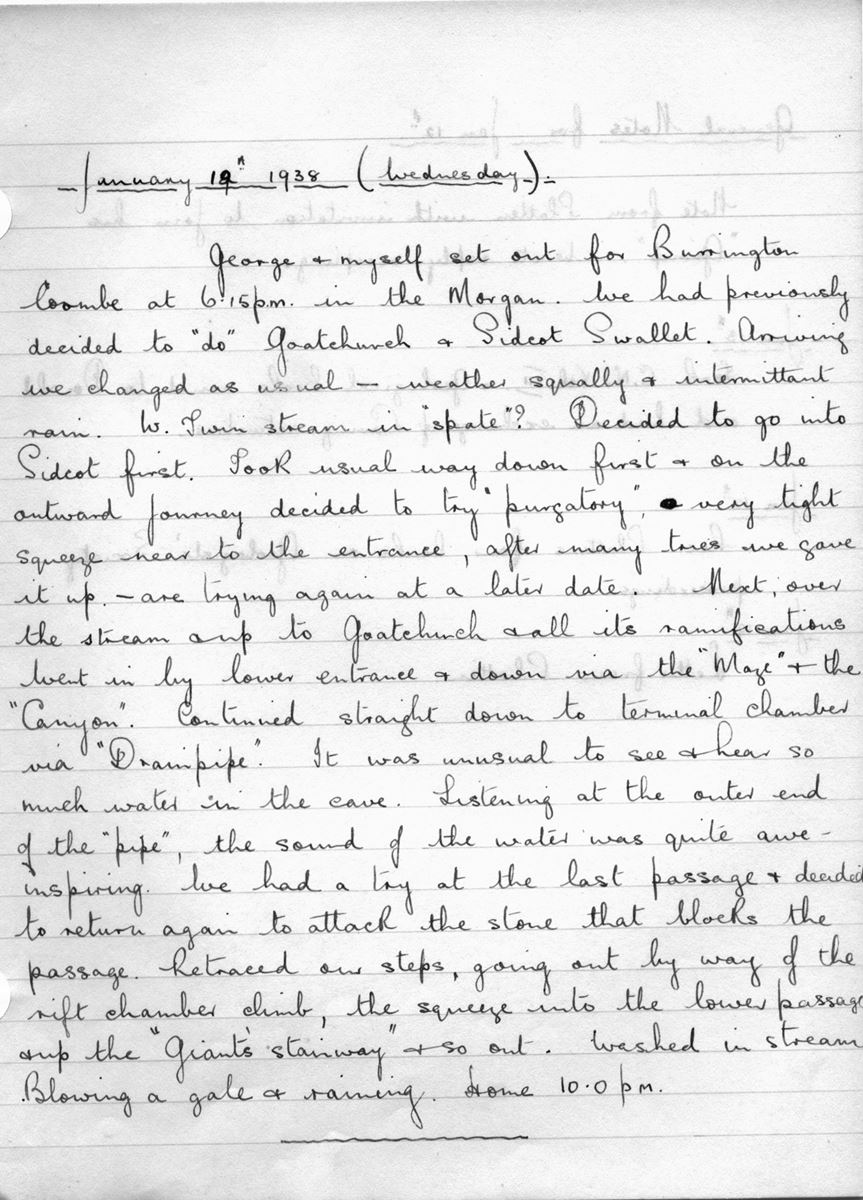 January 12th 1938 (Wednesday).
George & myself set out for Burrington
Coombe at 6.15pm. in the Morgan. We had previously
decided to "do" Goatchurch & Sidcot Swallet. Arriving
we changed as usual – weather squally & intermittant
rain. W. Twin stream in "spate"? Decided to go into
Sidcot first. Took usual way down first & on the
outward journey decided to try "purgatory", very tight
squeeze near to the entrance, after many tries we gave
it up. – are trying again at a later date. Next, over
the stream & up to Goatchurch & all its ramifications
Went in by lower entrance & down via the "Maze" & the
"Canyon". Continued straight down to terminal chamber
via "Drainpipe". It was unusual to see & hear so
much water in the cave. Listening at the outer end
of the "pipe", the sound of the water was quite awe-
inspiring. We had a try at the last passage & decided
to return again to attack the stone that blocks the
passage. Retraced our steps, going out by way of the
rift chamber climb, the squeeze into the lower passage
& up the "Giant's stairway" & so out. Washed in stream
Blowing a gale & raining. Home 10.0 pm.